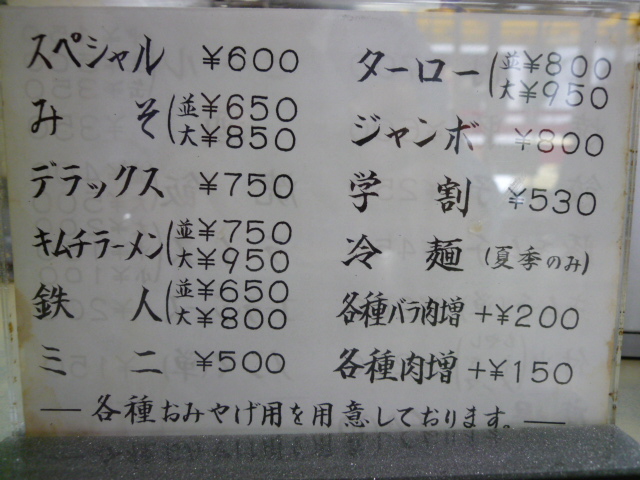 スペシャル ¥600
みそ (並¥650
大¥850
デラックス ¥750
キムチラーメン (並¥750
大¥950
鉄人 (並¥650
大¥800
ミニ ¥500
ターロー (並¥800
大¥950
ジャンボ ¥800
学割 ¥530
冷麺 (夏季のみ)
各種バラ肉増 +¥200
各種肉増 +¥150
― 各種おみやげ用を用意しております。―